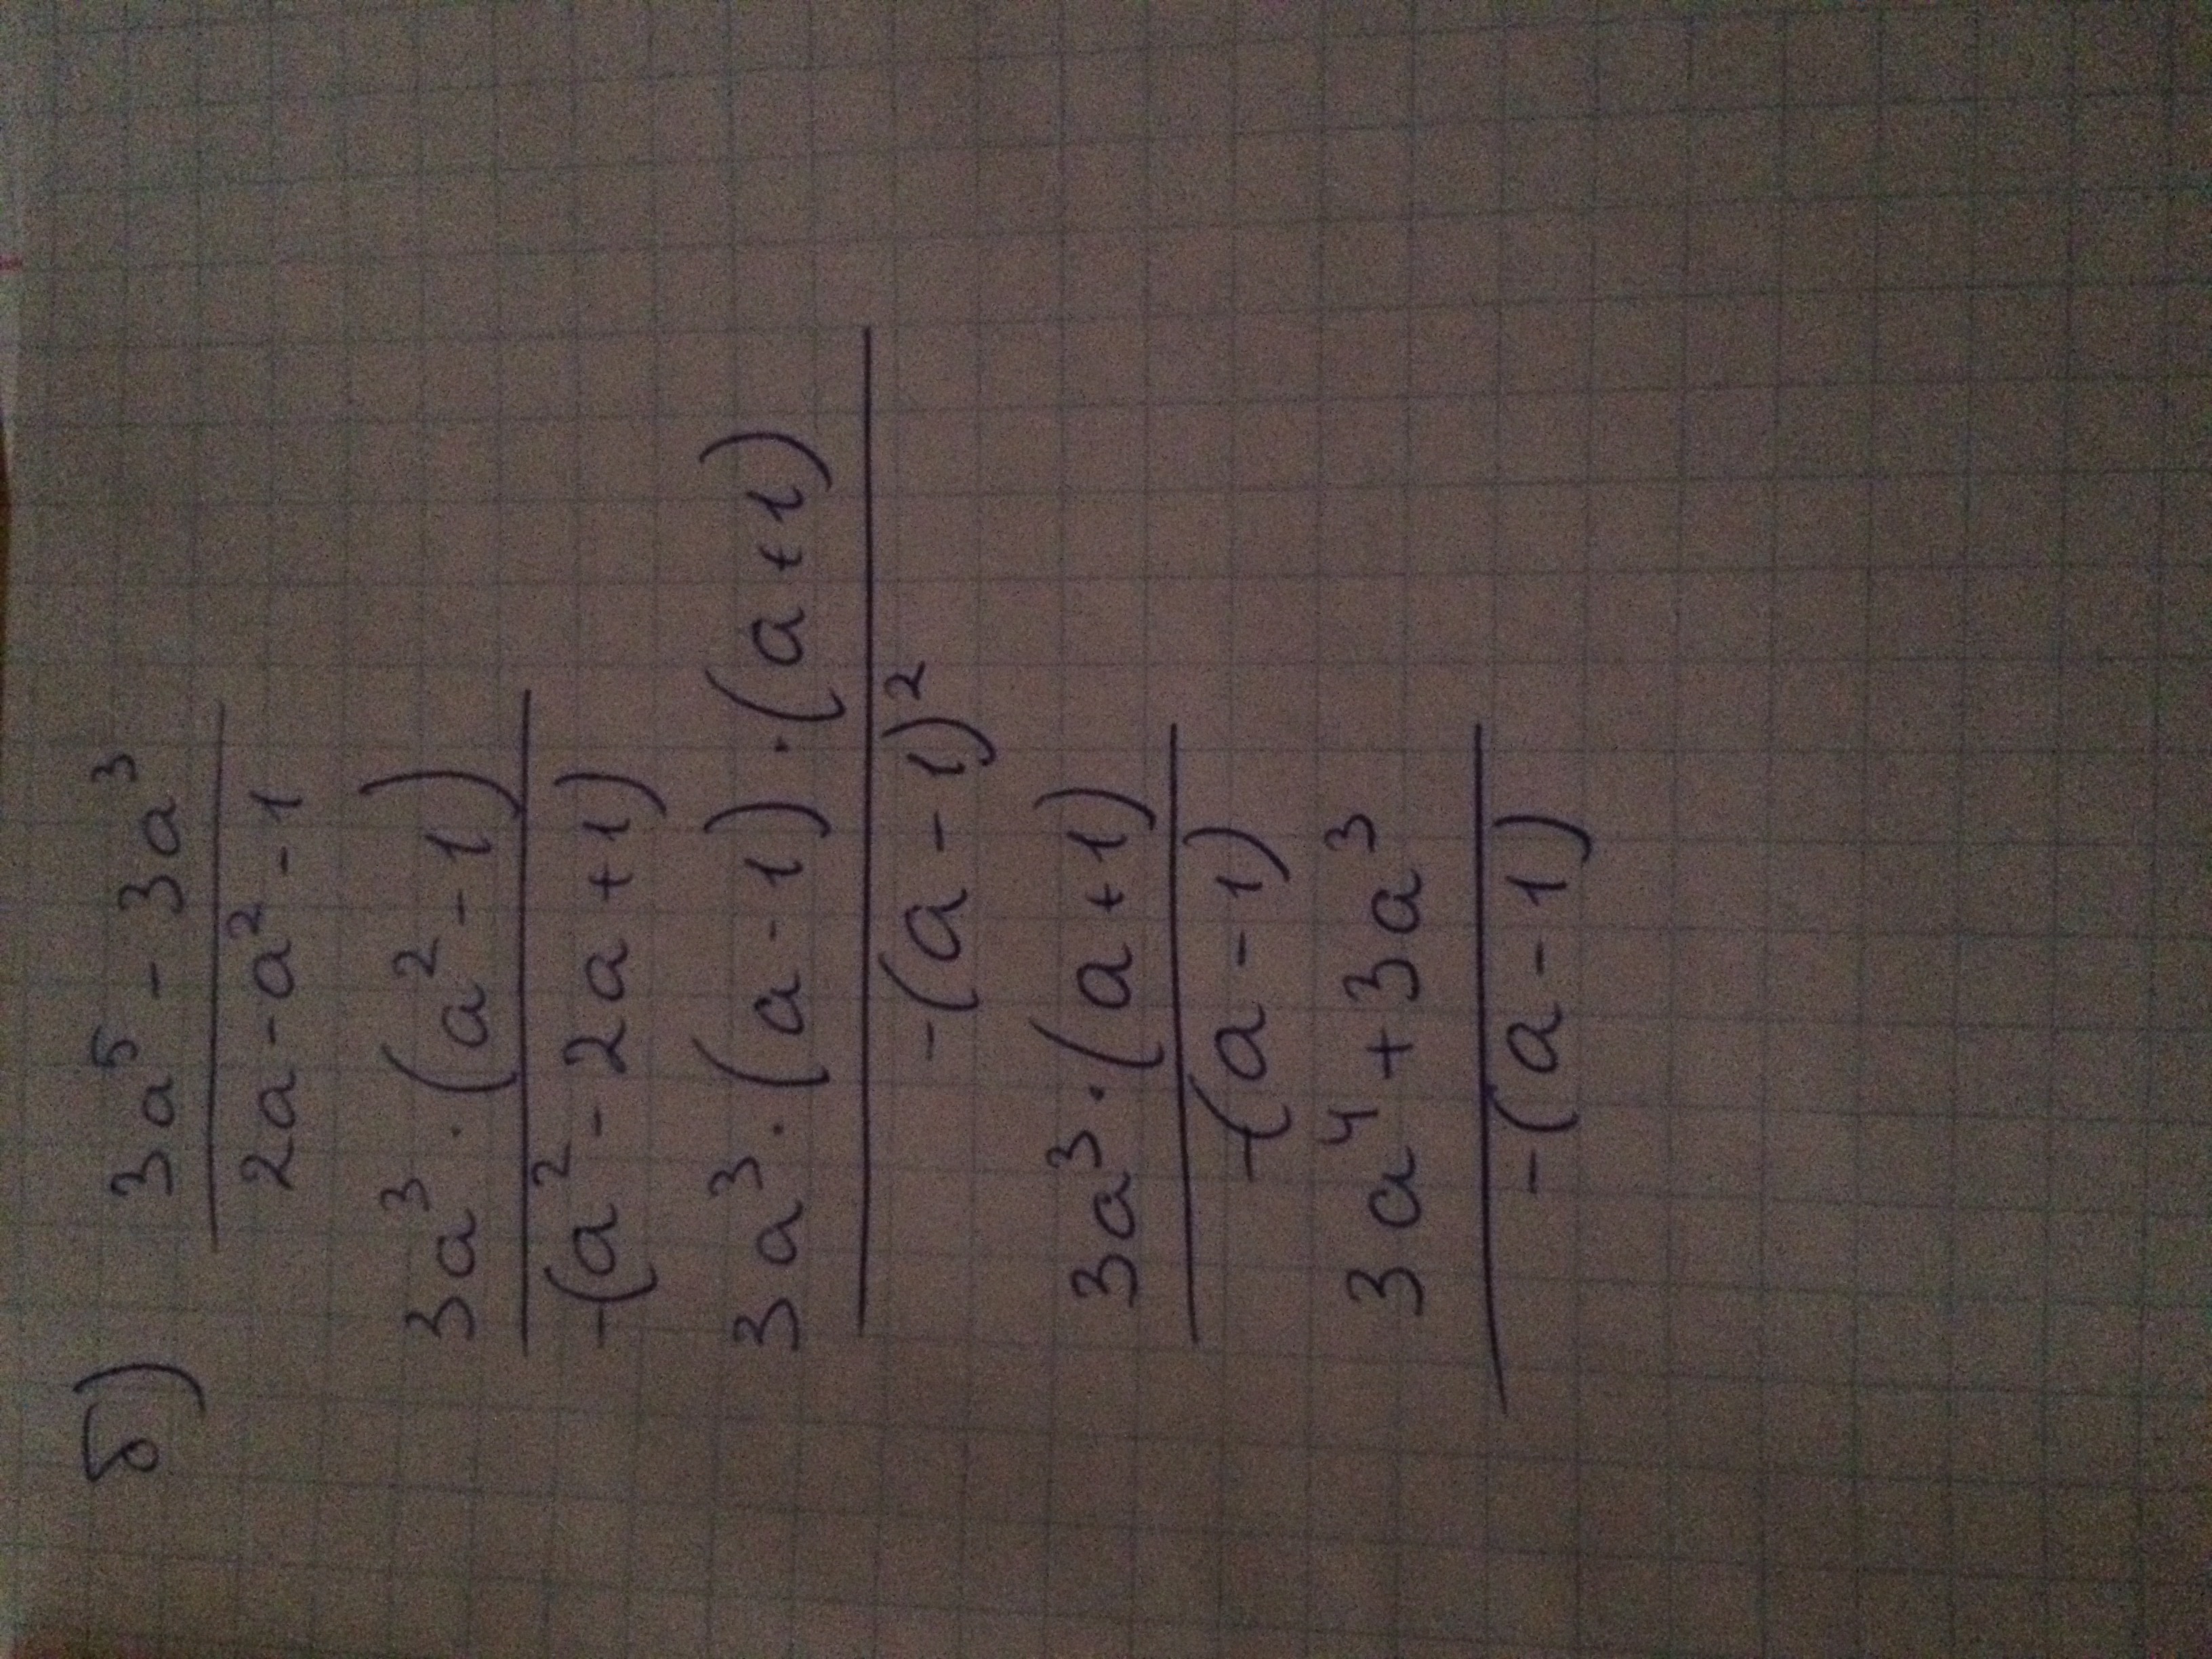 б) 3a⁵ - 3a³
2a - a² - 1
3a³ · (a² - 1)
-(a² - 2a + 1)
3a³ · (a - 1) · (a + 1)
-(a - 1)²
3a³ · (a + 1)
-(a - 1)
3a⁴ + 3a³
-(a - 1)